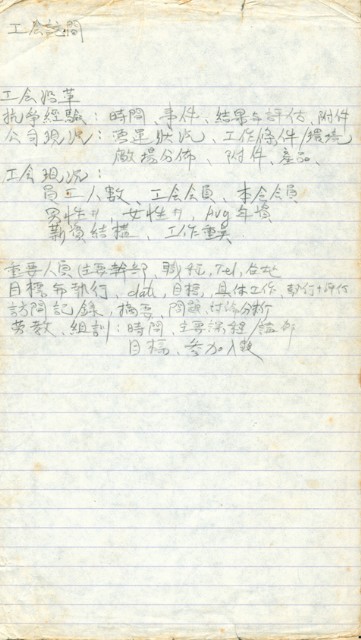 工会訪問
工会沿革
抗爭經驗：時間、事件、結果与評估、附件
公司現况：營運狀况、工作條件/環境
廠場分佈、附件、產品
工会現况：
員工人數、工会会員、本会会員
男性〃, 女性〃, Avg年資
薪資結構、工作重英
重要人員(主要幹部, 職位, Tel, 住址
目標与執行, dat, 目標, 具体工作, 執行+評估
訪問記錄, 摘要, 問題, 討論分析
劳教、組訓：時間、主要課程/
目標、參加人數